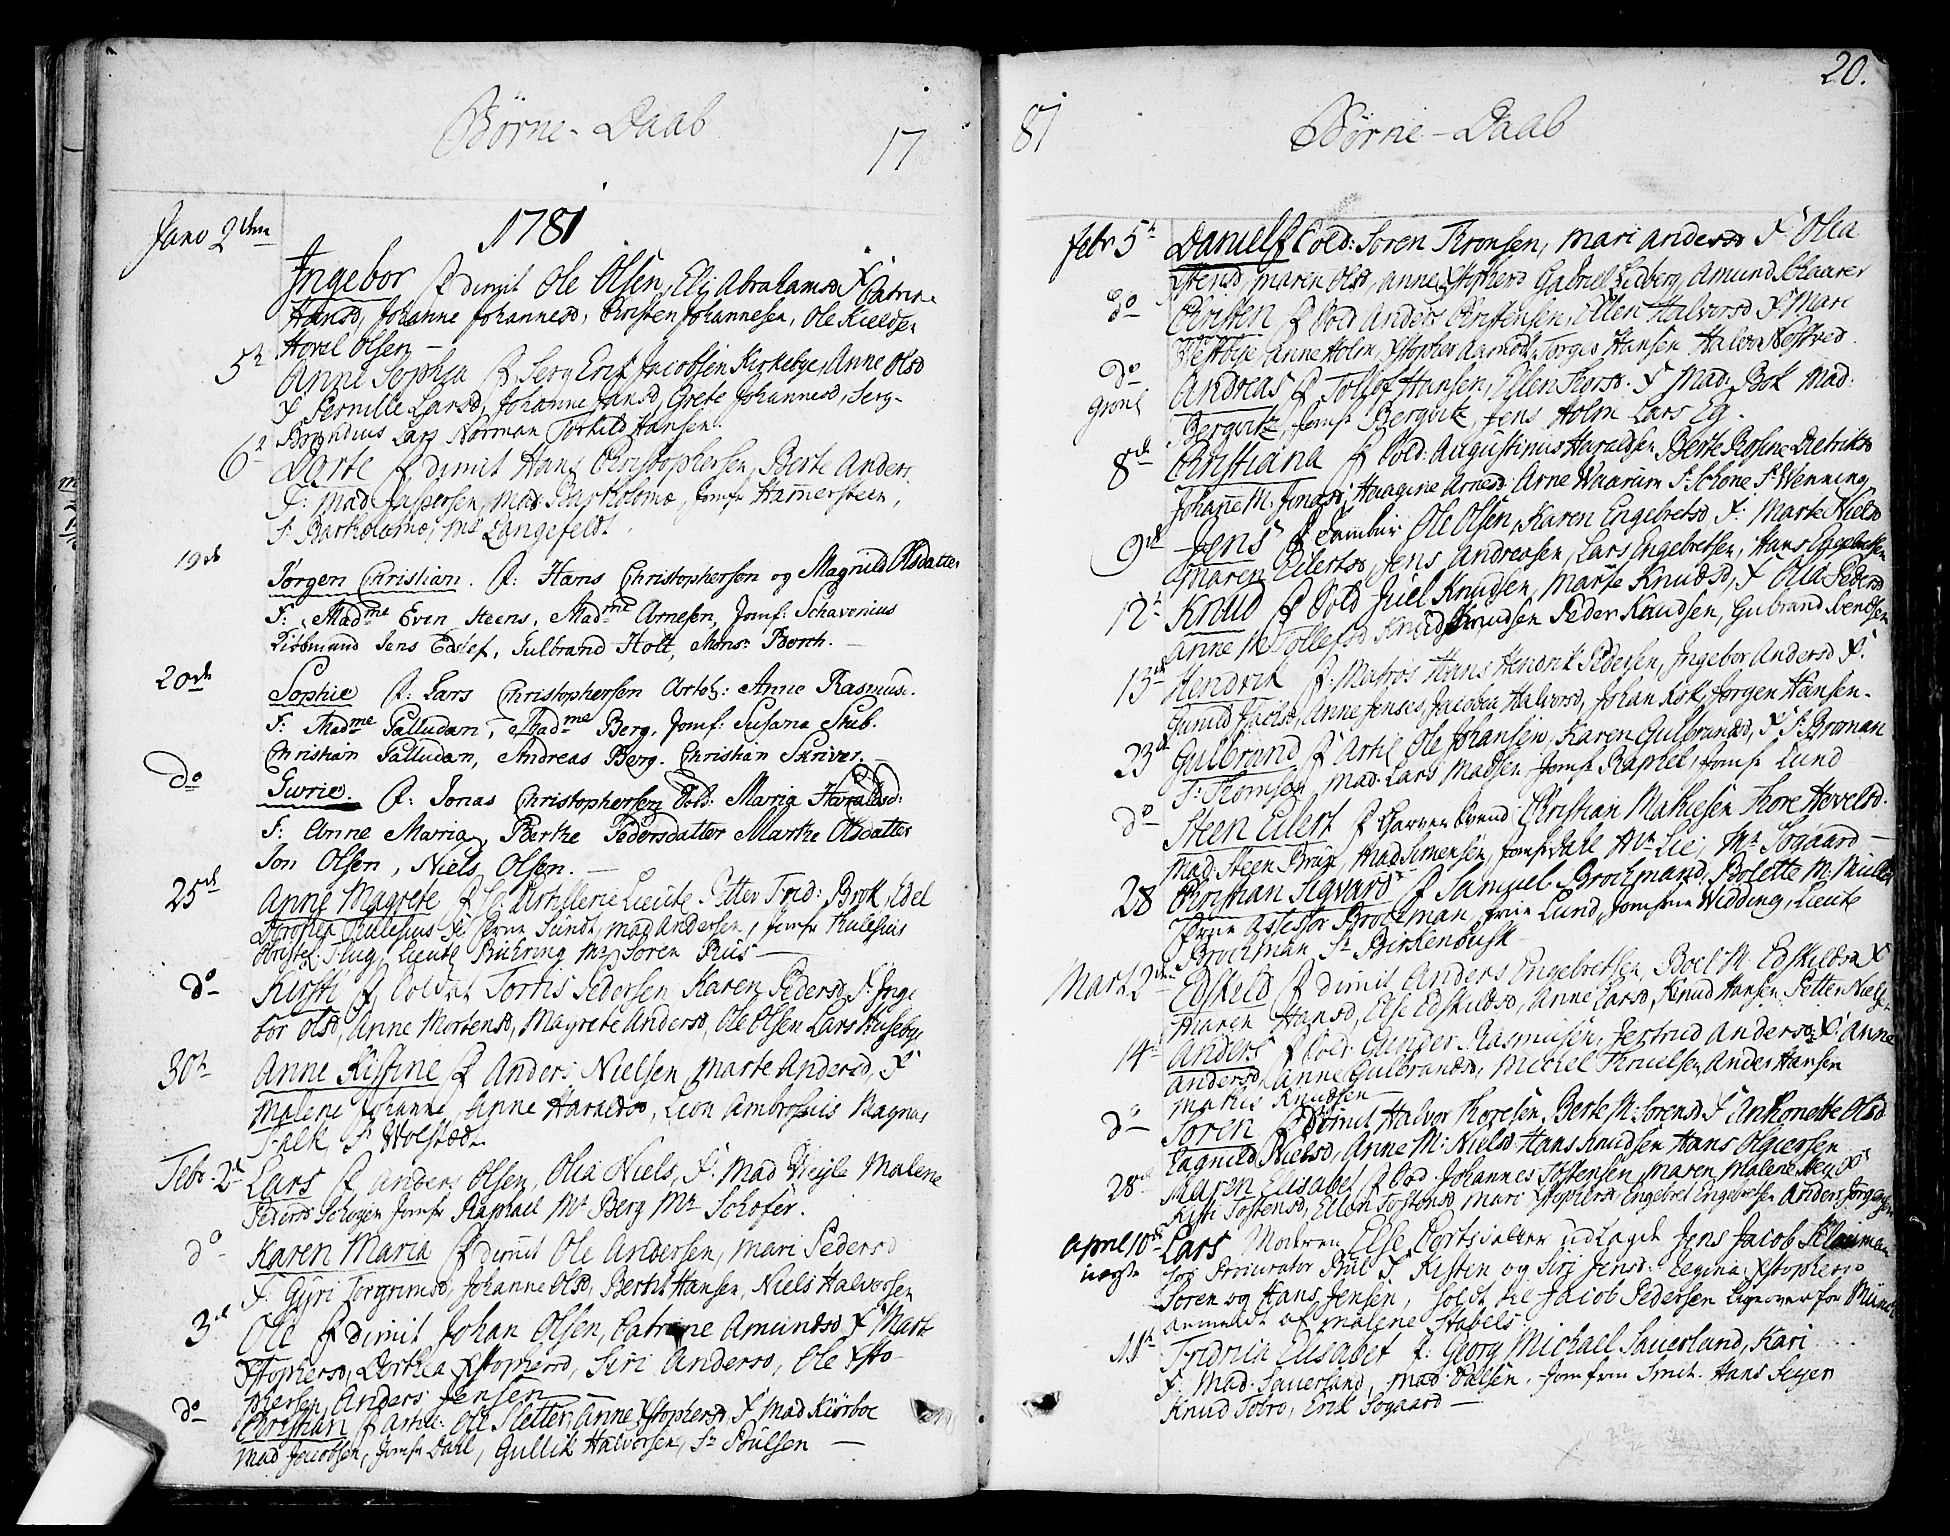 Børne-Daab
17
1781
Janv 2den
Ingebor P dimit Ole Olsen, Eli Abrahamsd F Catrine
Hansd, Johanne Johannesd, Christen Johannesen, Ole Kieldsen
Hovel Olsen —
5te Anne Sophia P. Serg Erik Jacobsen Kirkebye, Anne Olsd
F Pernille Larsd, Johanne Jansd, Grete Johannesd, Serg-
Brandius Lars Norman Torkild Hansen.
6te Dorte P dimit Hans Christophersen, Berte Anders
F: Mad Jaspersen, Mad: Bartholomæ, Jomfr Hammerstein,
Sr Bartholomæ, Mr Langefeldt.
19de
Jørgen Christian. P: Hans Christophersen og Magnild Olsdatter
F: Madme Even Steens, Madme Arnesen, Jomf: Schavenius
Kiøbmand Jens Edslef, Gulbrand Holt, Mons: Borch. —
20de Sophie P: Lars Christophersen Artol: Anne Rasmusd.
F: Madme Palludan, Madme Berg, Jomf: Susana Stub.
Christian Palludan, Andreas Berg. Christian Skriver. —
do Gurie. P: Jonas Christophersen Sold: Maria Haraldsd:
F: Anne Maria, Berthe Pedersdatter Marthe Olsdatter
Jon Olsen, Niels Olsen. —
25de Anne Magrete P Artillerie Lieute Petter Frid: Brok, Edel
Thulesius Sundt, Mad Andersen, Jomfr Thulesius
Flug, Lieute Buhring Mr Søren Rus —
do Kirsti P Soldat Tortis Pedersen Karen Pedersd, F. Inge
bor Olsd, Anne Mortensd, Magrete Andersd, Ole Olsen Lars Huseby
30te Anne Kistine P Anders Nielsen, Marte Andersd, F
Malene Johanne, Anne Haraldsd, Lion Ambrosius Magnus
Falk, Sr Wolstad.
Febr. 2de Lars P Anders Olsen, Olia Niels, F: Mad Weyle Malene
Pedersd Schogen Jomfr Raphael Mr Berg Mr Schøfer.
do Karen Maria P dimit Ole Andersen, Mari Pedersd
F. Gyri Torgrimsd, Johanne Olsd, Bertil Hansen, Niels Halvorsen
3de Ole P dimit Johan Olsen, Catrine Amundsd F Mart
Xstophersd, Dorthea Xstophersd, Siri Andersd, Ole Xsto-
phersen, Anders Jensen —
do Christian P Artil: Ole Sletten Anne Xstophersd, F Mad Kiørboe
Mad Jacobsen, Jomfr Dahl, Gullik Halvorsen, Sr Poulsen —
20.
81
Børne-Daab
Febr 5te Daniel P Sold: Søren Tronsen, Mari Andersd F Olia
Svensd, Maren Olsd, Anne Xstophersd Gabriel Sedberg, Amund Skaarer
do Christen P Sold Anders Christensen, Ellen Halvorsd F Mari
Westbye Anne Holm, Xstopher Aamodt, Torger Hansen Halvor Nestved.
do Andreas P Tollof Hansen, Ellen Torsd. F Mad: Bok Mad:
Grønl Bergvitz, Jomfr Bergvitz, Jens Holm Lars Eg.
8de Christiana P Sold: Augustinus Haraldsen Berte Rosine Dietriksd
Johane M. Jonasd, Haagine Arnesd, Arne Waarum Sr Schöne Sr Wenning
9de Jens P Tambur Ole Olsen, Karen Engebretsd F: Marte Nielsd
Maren Eilertsd, Jens Andreasen, Lars Engebretsen, Hans Engebretsen
12te Knud P Sold Juel Knudsen, Marte Knudsd, F Olia Pedersd
Anne M Tollefsd Knud Knudsen Peder Knudsen, Gulbrand Svendsen
13de Hendrik P. Matros Hans Hendrik Pedersen, Ingebor Andersd F.
Gunild Jacobsd, Anne Jensd, Jacobia Halvorsd, Johan Ask, Jørgen Hansen.
23de Gulbrand P Artil Ole Johansen, Karen Gulbrandsd, F Sr Broman
Sr Thomsen, Mad: Lars Madsen Jomfr Raphel, Jomfr Lund
do Steen Eilert P Garver Svend Christian Mathiesen Thore Hevelsd.
Mad: Steen Brüge, Mad Simensen, Jomfr Dahl Hr Lie, Mr Søgaard —
28 Christian Sigvard P Samuel Brochmand, Bolette M. Müller
Frue Assessor Brochman, Frue Lund, Jomfrue Widding, Lieute
Brochman Sr Birkenbusk
Mart. 2den Edskeld P dimit Anders Engebretsen, Boel M. Edskildsd F
Maren Hansd, Else Edskildsd, Anne Larsd, Knud Hansen, Petter Nielsen
14de Anders P Sold: Gunder Rasmusen, Gertrud Andersd F: Anne
Andersd, Anne Gulbrandsd, Michel Truelsen, Anders Hansen
Mathis Knudsen —
do Søren P Dimit Halvor Thoresen, Berte M. Sørensd F Anthonette Olsd
Ragnild Nielsd, Anne M. Nielsd Hans Knudsen Hans Olgiersen
28de Maren Elisabet P Sold: Johannes Tostensen, Maren Malene F
Kisti Tostensd, Ellen Tostensd Mari Xstophersd Engebret Engebretsen Anders Jørgensen
April 10de Lars Moderen Else Cortsdatter udlagde Jens Jacob
uægte Sr Procurator Bul F Kisten og Siri Jensd. Regina Xstophersd
Søren og Hans Jensen, holdt til Jacob Pedersen ligeover for Münch
anmeldt af Malene Stabels
11te Fridrica Elisabet P: Georg Michael Sauerland, Kari . . .
F. Mad. Sauerland, Mad: Olsen, Jomfrue Smit. Hans Seyer
Knud Sobro, Erik Søgaard —